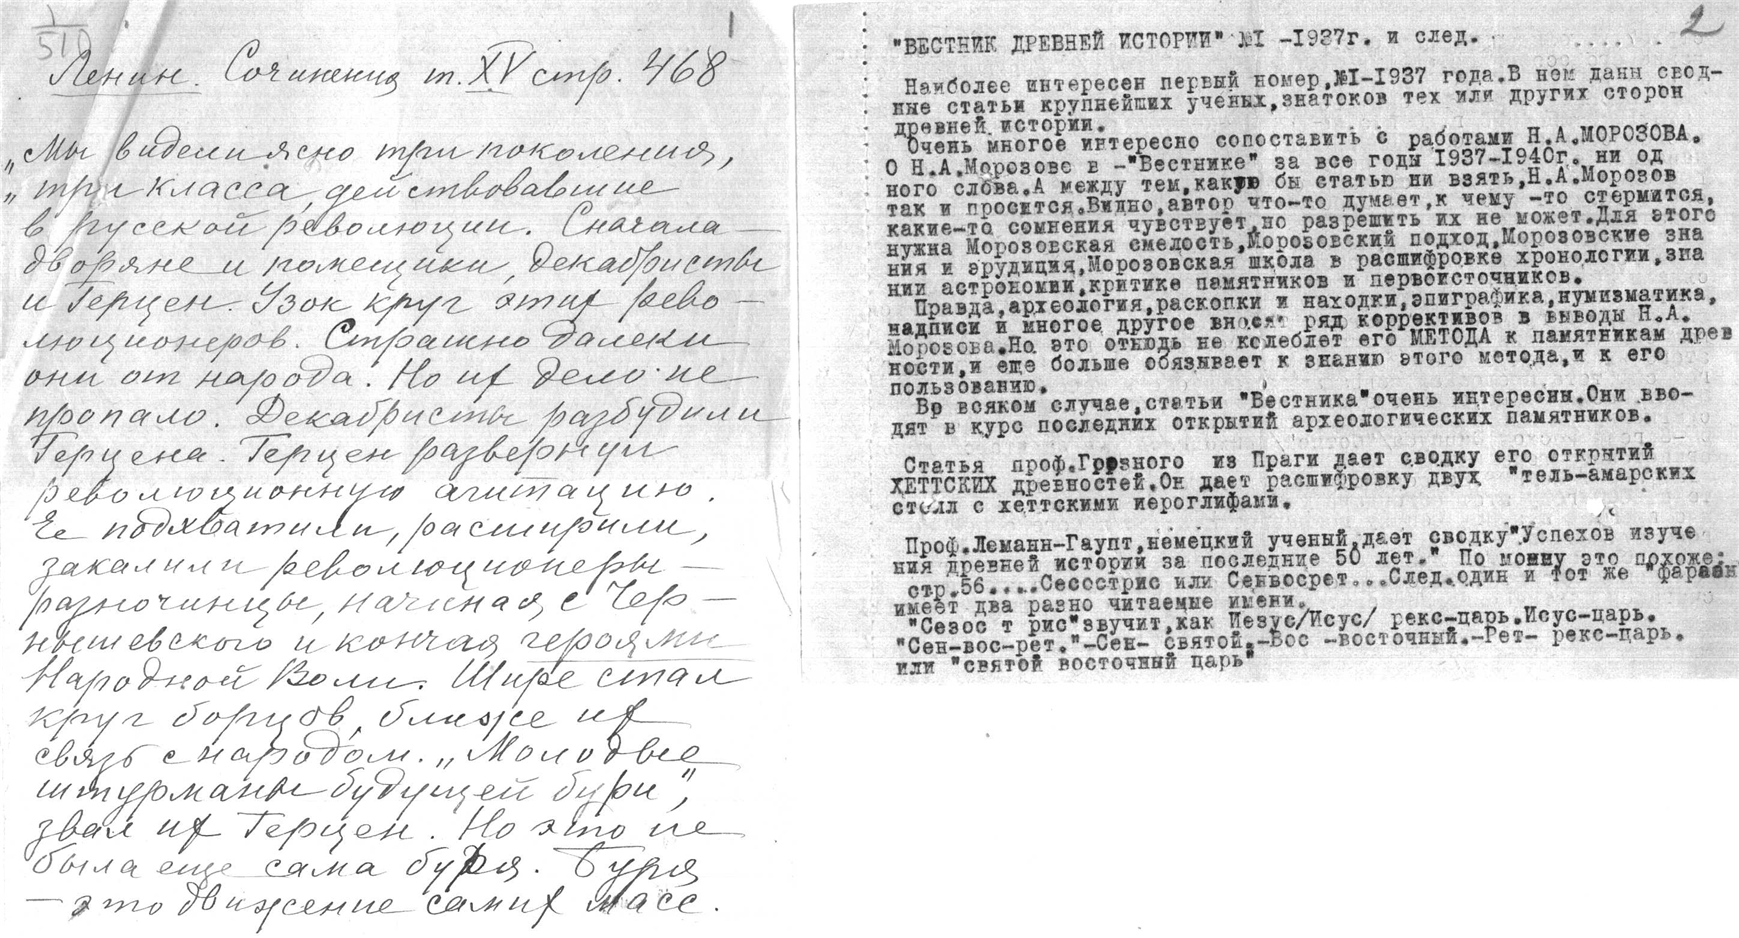 1
510
1
Ленин. Сочинения т. XV стр. 468
„Мы видели ясно три поколения,
„три класса, действовавшие
в русской революции. Сначала —
дворяне и помещики, декабристы
и Герцен. Узок круг этих рево-
люционеров. Страшно далеки
они от народа. Но их дело не
пропало. Декабристы разбудили
Герцена. Герцен развернул
революционную агитацию.
Ее подхватили, расширили,
закалили революционеры —
разночинцы, начиная с Чер-
нышевского и кончая героями
Народной Воли. Шире стал
круг борцов, ближе их
связь с народом. „Молодые
штурманы будущей бури",
звал их Герцен. Но это не
была еще сама буря. Буря
— это движение самих масс.
2
"ВЕСТНИК ДРЕВНЕЙ ИСТОРИИ" №I -1937г. и след.
Наиболее интересен первый номер,№I-1937 года.В нем даны свод-
ные статьи крупнейших ученых,знатоков тех или других сторон
древней истории.
Очень многое интересно сопоставить с работами Н.А.МОРОЗОВА.
О Н.А.Морозове в -"Вестнике" за все годы 1937-1940г. ни од
ного слова.А между тем,какую бы статью ни взять,Н.А.Морозов
так и просится.Видно,автор что-то думает,к чему -то стермится,
какие-то сомнения чувствует,но разрешить их не может.Для этого
нужна Морозовская смелость,Морозовский подход,Морозовские зна
ния и эрудиция,Морозовская школа в расшифровке хронологии,зна
нии астрономии,критике памятников и первоисточников.
Правда,археология,раскопки и находки,эпиграфика,нумизматика,
надписи и многое другое вносят ряд коррективов в выводы Н.А.
Морозова.Но это отнюдь не колеблет его МЕТОДА к памятникам древ
ности,и еще больше обязывает к знанию этого метода,и к его
пользованию.
Во всяком случае,статьи "Вестника"очень интересны.Они вво-
дят в курс последних открытий археологических памятников.
Статья проф.Грозного из Праги дает сводку его открытий
ХЕТТСКИХ древностей.Он дает расшифровку двух "тель-амарских
стелл с хеттскими иероглифами.
Проф.Леманн-Гаупт,немецкий ученый,дает сводку"Успехов изуче
ния древней истории за последние 50 лет." По моему это похоже:
стр.56.....Сесострис или Сенвосрет...След.один и тот же "фараон
имеет два разно читаемые имени.
"Сезос т рис"звучит,как Иезус/Исус/ рекс-царь.Исус-царь.
"Сен-вос-рет."-Сен- святой.-Вос -восточный.-Рет- рекс-царь.
или "святой восточный царь"